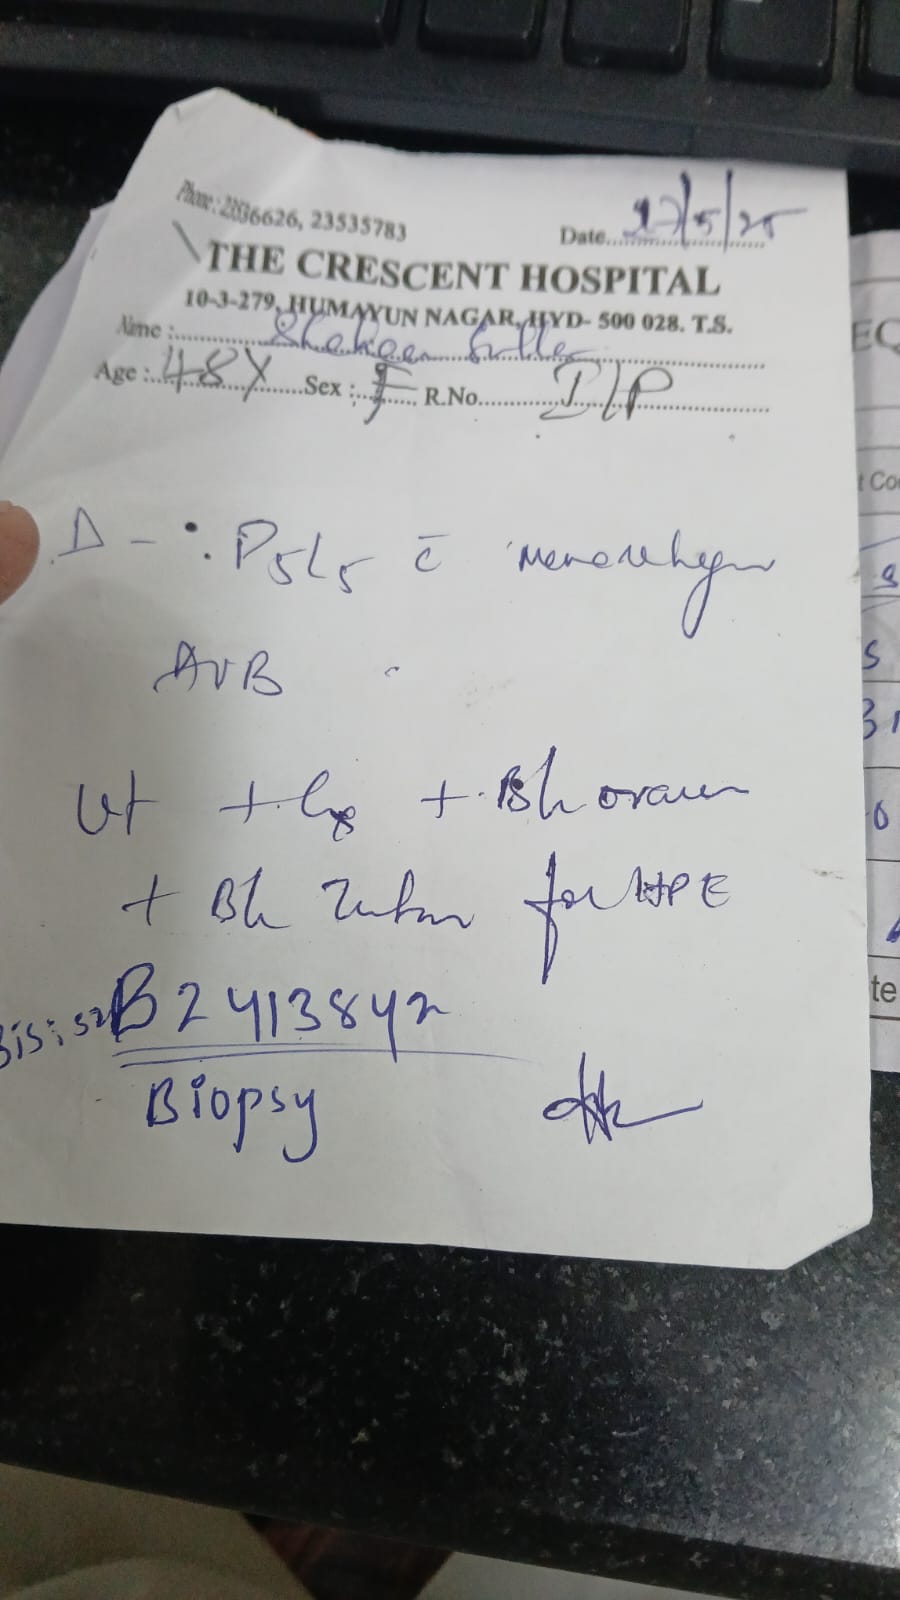 Phone: 2886626, 23535783
Date 27/5/25
THE CRESCENT HOSPITAL
10-3-279, HUMAYUN NAGAR, HYD- 500 028. T.S.
Name : Shaheen
Age : 48Y Sex : F R.No. I/P
Δ - : P5L5 c̄
AUB
Ut + Cx + B/L ovaries
+ B/L Tubes for HPE
B2413842
Biopsy
EQ
te